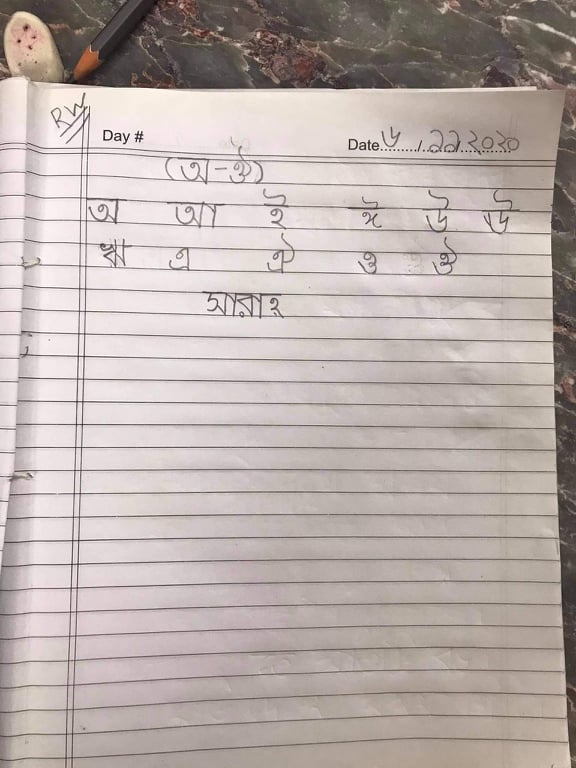 RW
Day # Date ৬/১১/২০২০
(অ-ঔ)
অ আ ই ঈ উ ঊ
ঋ এ ঐ ও ঔ
সারাহ